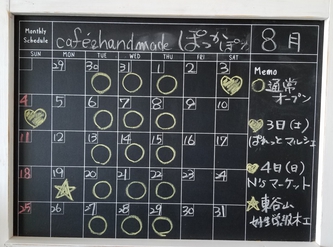 Monthly Schedule
café&handmade ぽっかぽか 8月
SUN MON TUE WED THU FRI SAT
29 30 31 1 2 3
4 5 6 7 8 9 10
11 12 13 14 15 16 17
18 19 20 21 22 23 24
25 26 27 28 29 30 31
Memo
○通常
オープン
♥3日(土)
ぱれっとマルシェ
♥4日(日)
N'sマーケット
★東谷山